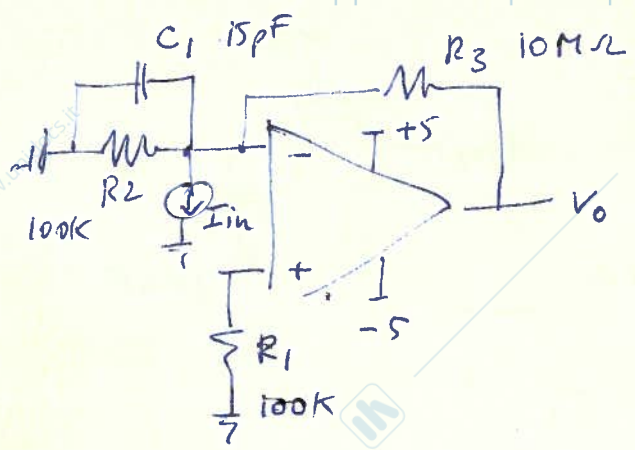 C1 15pF
R3 10MΩ
+5
-
R2
100K
Iin
Vo
+
-5
R1
100K